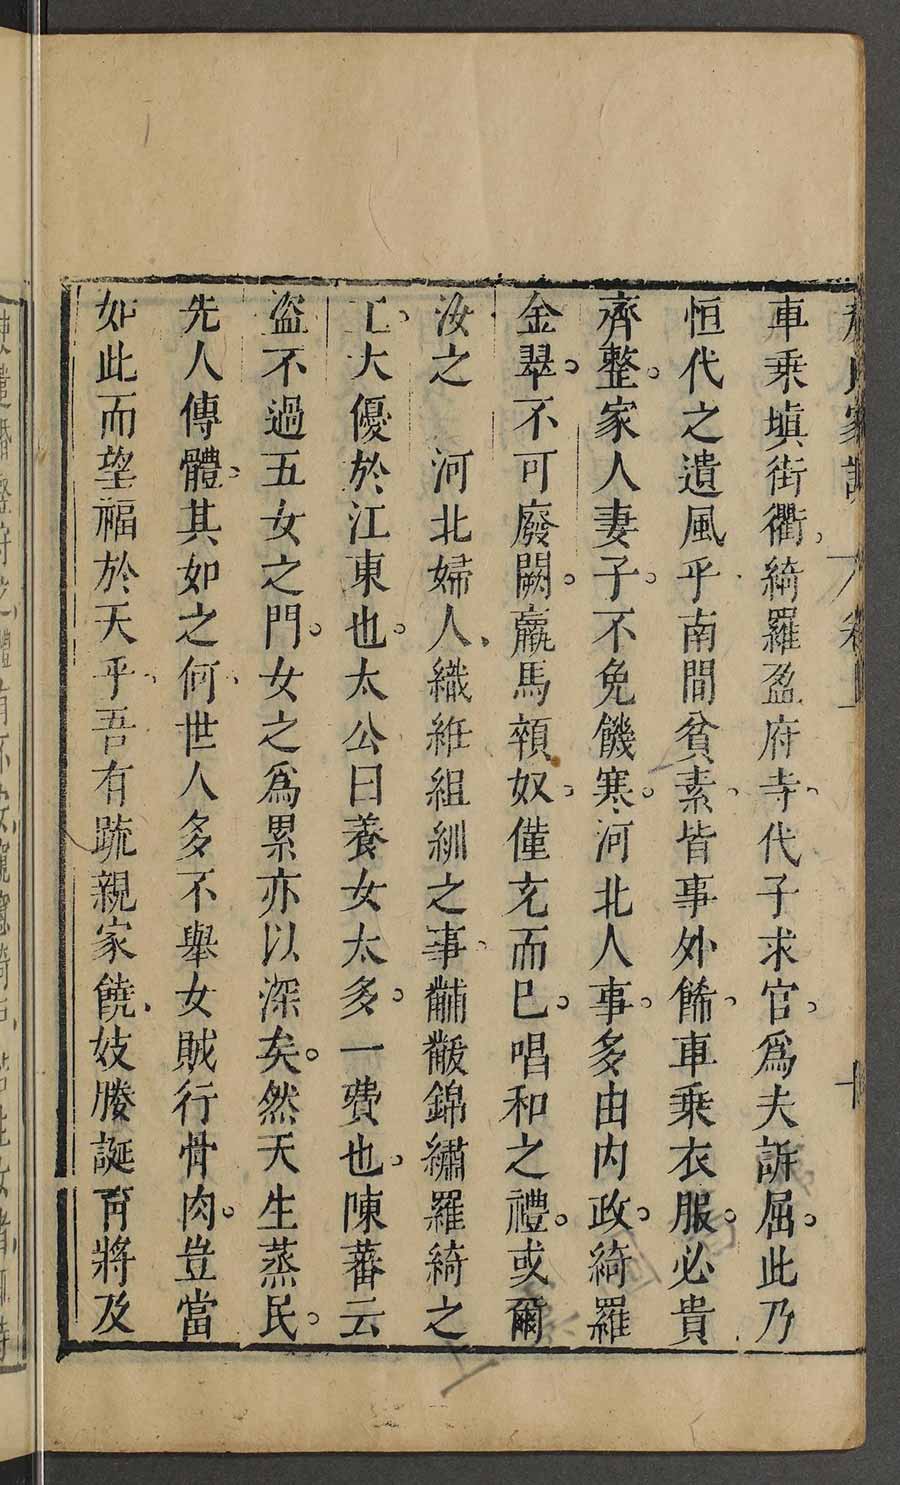 車乘塡街衢綺羅盈府寺代子求官爲夫訴屈此乃
恒代之遺風乎南間貧素皆事外餙車乘衣服必貴
齊整家人妻子不免饑寒河北人事多由内政綺羅
金翠不可廢闕羸馬顇奴僅充而已唱和之禮或爾
汝之　河北婦人織紝組紃之事黼黻錦繡羅綺之
工大優於江東也太公曰養女太多一費也陳蕃云
盗不過五女之門女之爲累亦以深矣然天生蒸民
先人傳體其如之何世人多不舉女賊行骨肉豈當
如此而望福於天乎吾有疏親家饒妓媵誕育將及